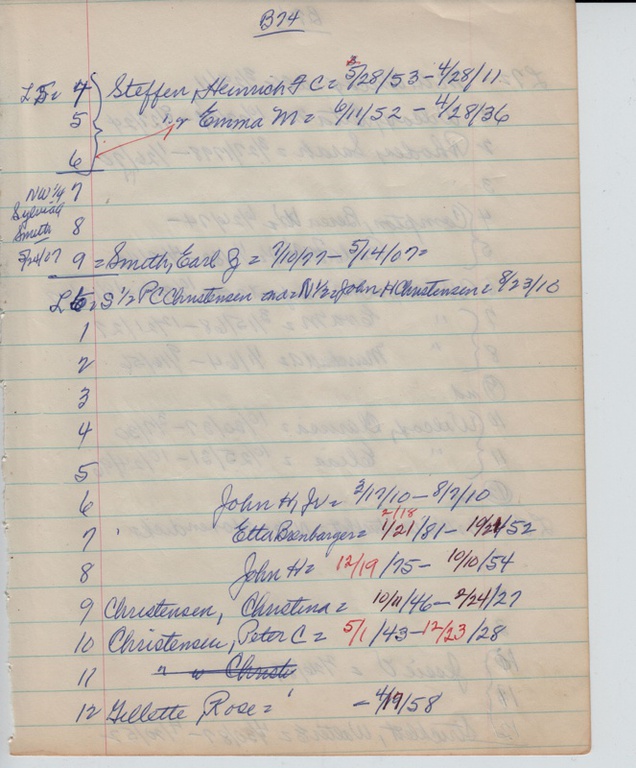 B74
L5= 4 Steffen, Heinrich F C = 5/28/53 - 4/28/11
5 " Emma M = 6/11/52 - 4/28/36
6
NW 1/4 7
Sylvia
Smith 8
5/24/07 9 = Smith, Earl Z = 7/10/77 - 5/14/07 =
L6= S 1/2 P C Christensen and = N 1/2 = John H Christensen = 8/23/10
1
2
3
4
5
6 John H, Jr = 3/17/10 - 8/7/10
2/18
7 Etta Bornbarger = 1/21/81 - 1921/52
8 John H = 12/19/75 - 10/10/54
9 Christensen, Christina = 10/11/46 - 2/24/27
10 Christensen, Peter C = 5/1/43 - 12/23/28
11 " " Christi
12 Gillette, Rose = - 4/19/58